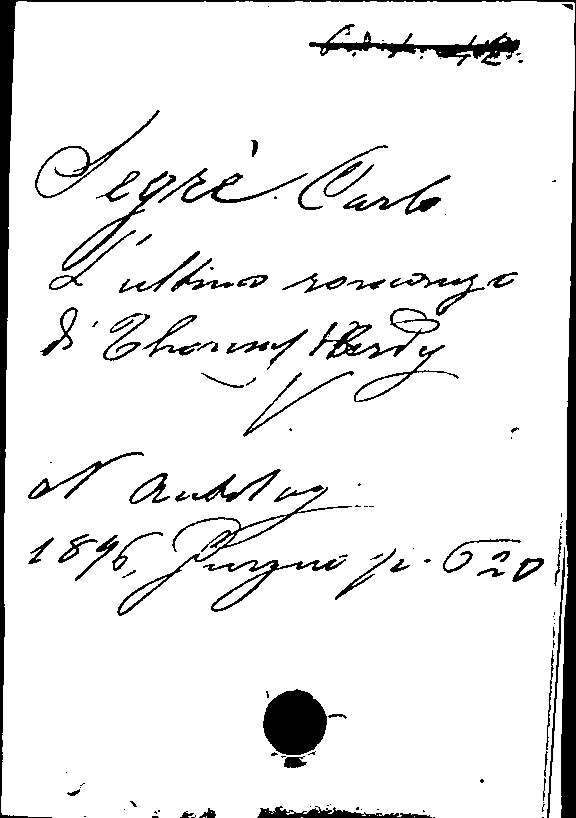 Segrè Carlo
L'ultimo romanzo
di Thomas Hardy
N Antolog
1896, Giugno p. 620